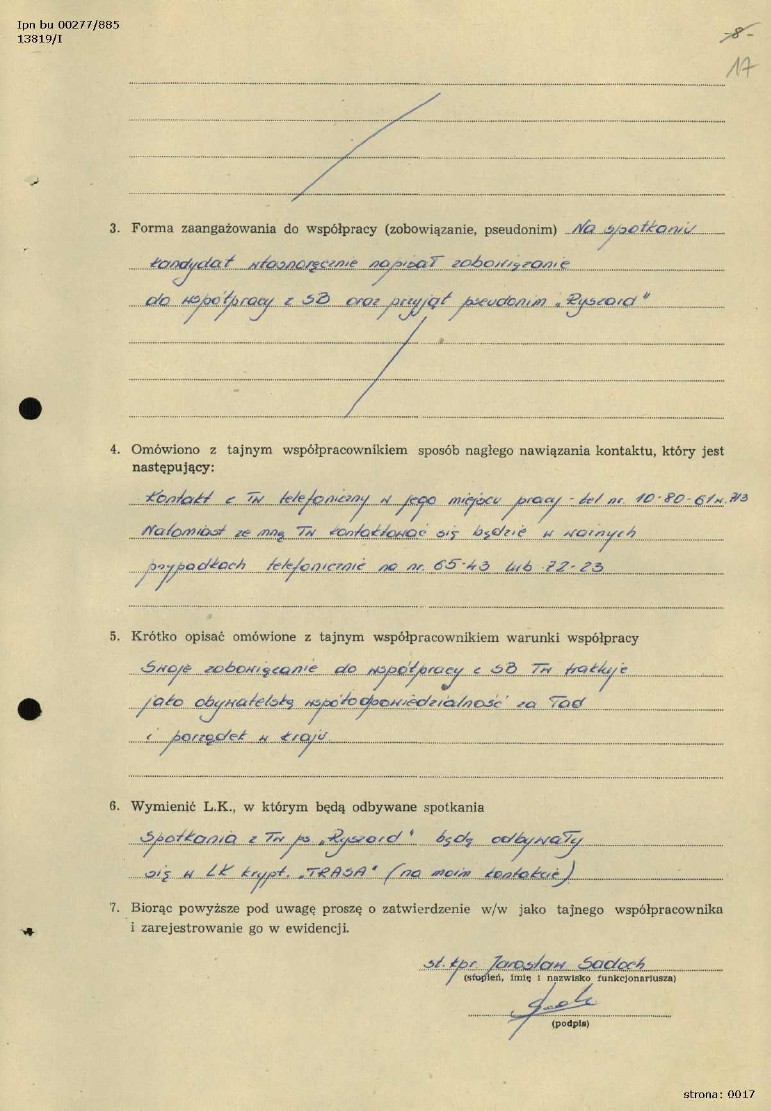 Ipn bu 00277/885
13819/I
-8-
17
3. Forma zaangażowania do współpracy (zobowiązanie, pseudonim) Na spotkaniu
kandydat własnoręcznie napisał zobowiązanie
do współpracy z SB oraz przyjął pseudonim „Ryszard"
4. Omówiono z tajnym współpracownikiem sposób nagłego nawiązania kontaktu, który jest
następujący:
Kontakt z TW telefoniczny w jego miejscu pracy - tel nr. 10-80-61 w. 713
Natomiast ze mną TW kontaktować się będzie w ważnych
przypadkach telefonicznie na nr. 65-43 lub 72-23
5. Krótko opisać omówione z tajnym współpracownikiem warunki współpracy
Swoje zobowiązanie do współpracy z SB TW traktuje
jako obywatelską współodpowiedzialność za ład
i porządek w kraju
6. Wymienić L.K., w którym będą odbywane spotkania
Spotkania z TW ps „Ryszard" będą odbywały
się w LK krypt. „TRASA" (na moim kontakcie)
7. Biorąc powyższe pod uwagę proszę o zatwierdzenie w/w jako tajnego współpracownika
i zarejestrowanie go w ewidencji.
st. kpr. Jarosław Sadoch
(stopień, imię i nazwisko funkcjonariusza)
(podpis)
strona: 0017